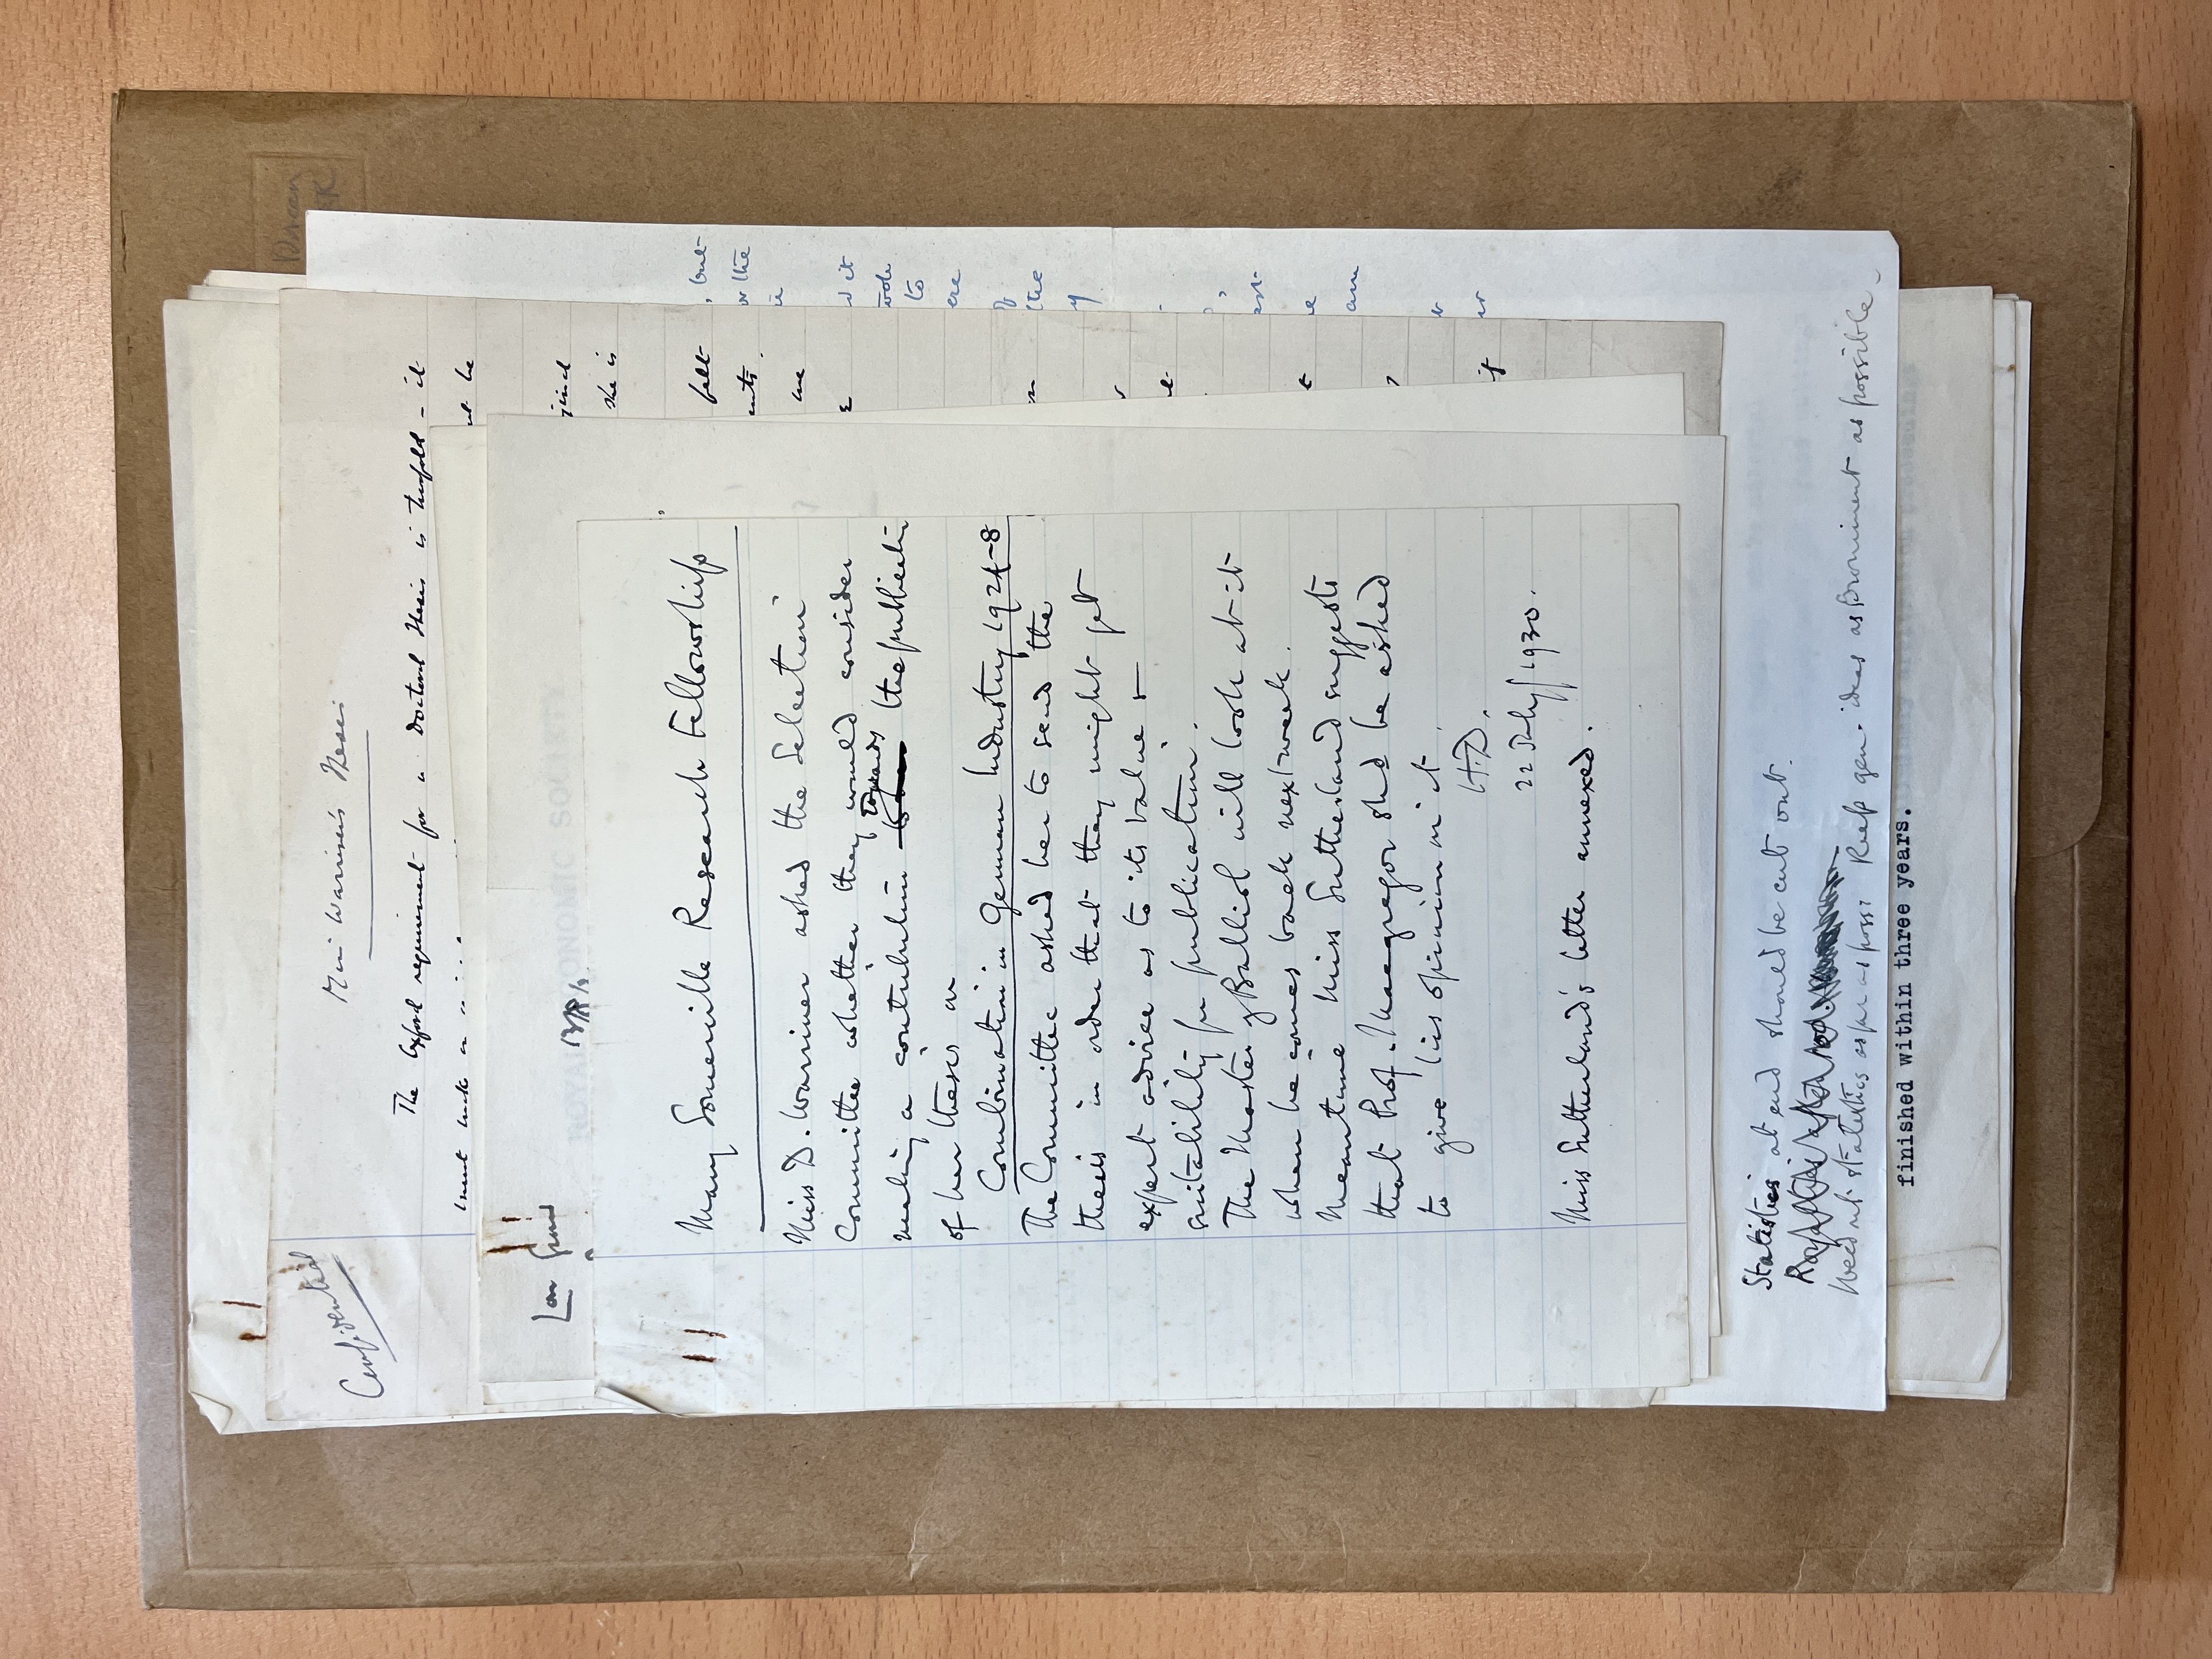 Duncan
Confidential
Miss Warriner's Thesis
The Oxford requirement for a Doctoral thesis is twofold - it
must
jind
She is
felt
me
if
, but
or the
d it
to
ere
the
y
e am
ROYAL ECONOMIC SOCIETY
Mary Somerville Research Fellowship
Miss D. Warriner asked the Selection
Committee whether they would consider
making a contribution towards the publicatn
of her thesis on
Combination in German Industry 1924-8
The Committee asked her to send the
thesis in order that they might get
expert advice as to its value &
suitability for publication.
The Master of Balliol will look at it
when he comes back next week.
Meantime Miss Sutherland suggests
that Prof. Macgregor shd be asked
to give his opinion on it.
H.D.
22 July 1930.
Miss Sutherland's letter annexed.
Statistics at end should be cut out.
Weed out statistics as far as poss: Keep gen. ideas as prominent as possible.
finished within three years.